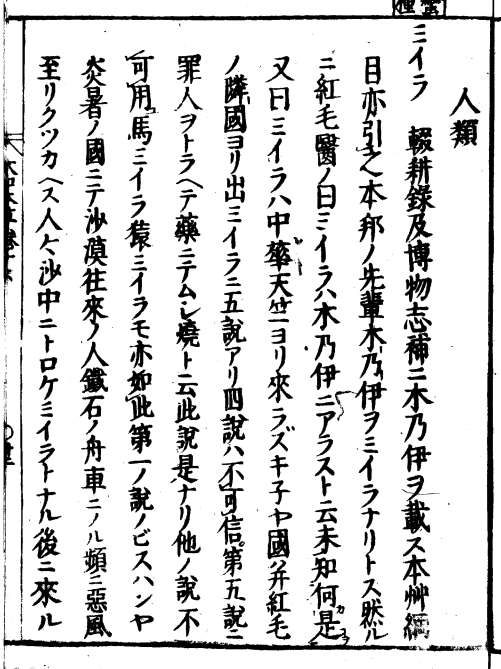 人類
ミイラ 輟耕錄及博物志補ニ木乃伊ヲ載ス本艸綱
目亦引之本邦ノ先輩木乃伊ヲミイラナリトス然ル
ニ紅毛醫ノ曰ミイラハ木乃伊ニアラスト云未知何是
又曰ミイラハ中華天竺ヨリ來ラズキ子ヤ國并紅毛
ノ隣國ヨリ出ミイラニ五說アリ四說ハ不可信第五說ニ
罪人ヲトラヘテ藥ニテムシ燒ト云此說是ナリ他ノ說不
可用馬ミイラ猿ミイラモ亦如此第一ノ說ノビスハンヤ
炎暑ノ國ニテ沙漠往來ノ人鐵石ノ舟車ニノル頻ニ惡風
至リクツカヘス人々沙中ニトロケミイラトナル後ニ來ル